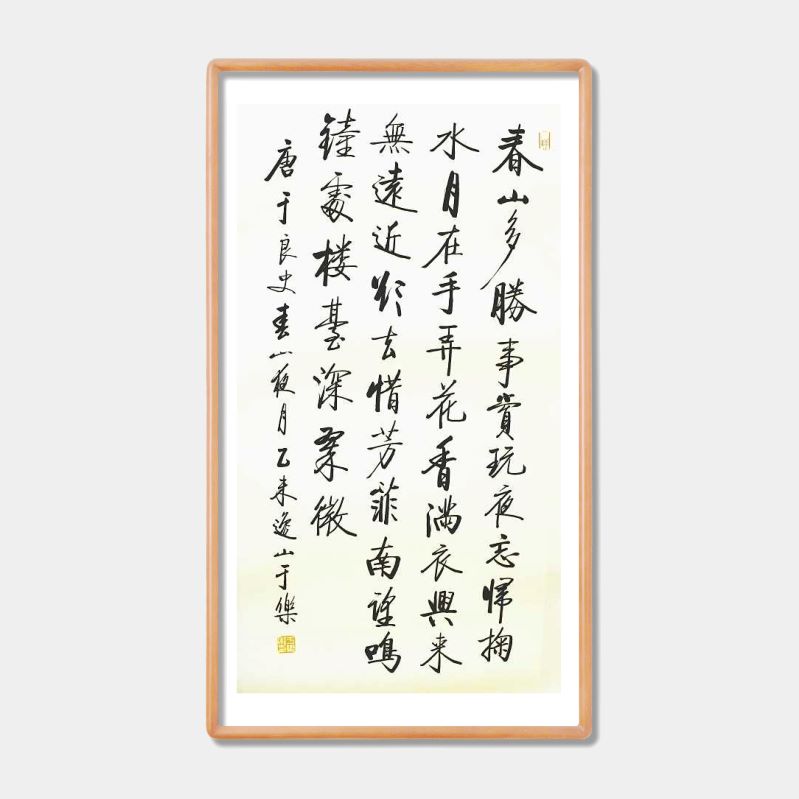 春山多勝事賞玩夜忘歸掬
水月在手弄花香滿衣興来
無遠近欲去惜芳菲南望鳴
鐘處楼臺深翠微
唐于良史春山夜月乙未逸山于樂